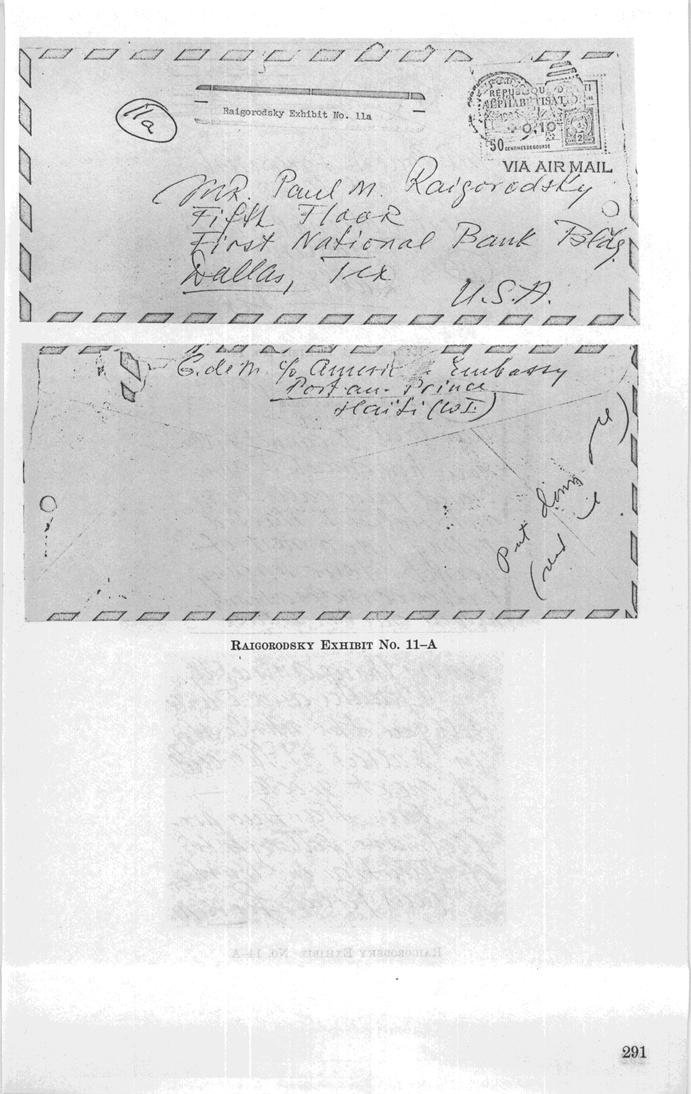 11a
Raigorodsky Exhibit No. 11a
REPUBLIQU
ALPHABETISAT
0.10
50 CENTIMES DE GOURDE
VIA AIR MAIL
Mr. Paul M. Raigorodsky
Fifth Floor
First National Bank Bldg
Dallas, Tex
U.S.A.
G. de M. c/o Americ Embassy
Port au-Prince
Haiti (W I.)
Put
RAIGORODSKY EXHIBIT No. 11–A
RAIGORODSKY EXHIBIT No. 11–A
291